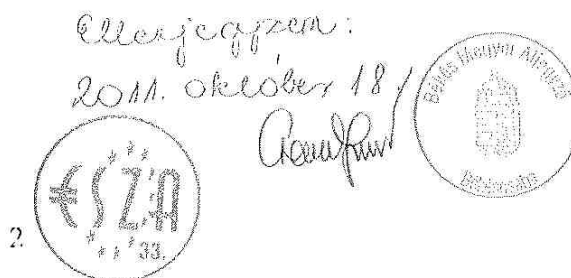 Ellenjegyzem:
2011. október 18.
Békés Megyei
Békéscsaba
ESZA
33.
2.